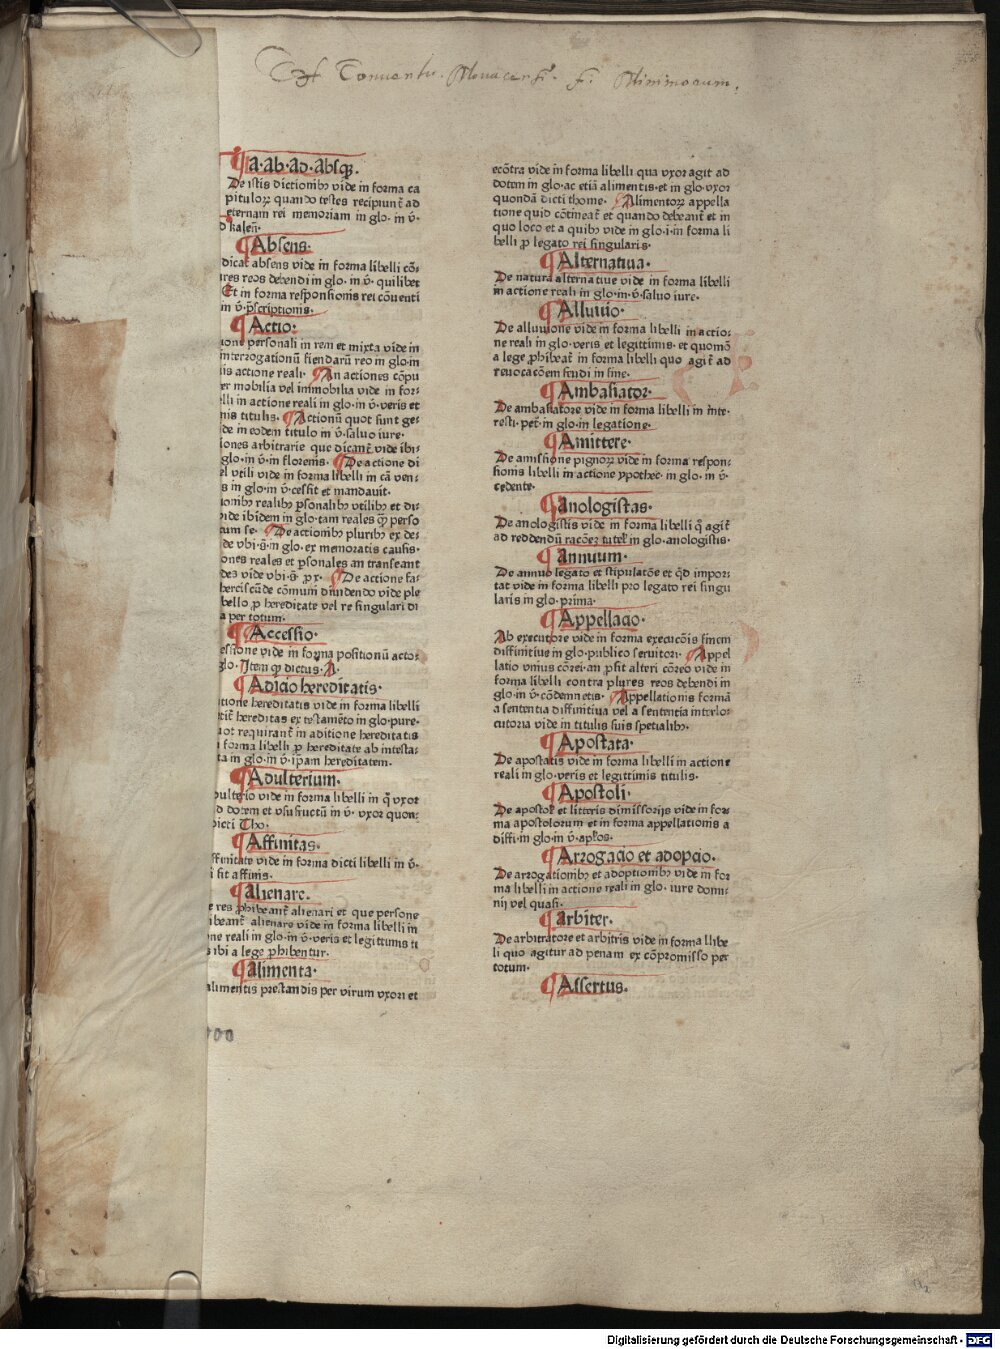 Conuentu. Monacensi. f. Minimorum.
A·ab·ad·absq̃.
De istis dictionibꝫ vide in forma ca
pitulorꝝ quando testes recipiunt̃ ad
eternam rei memoriam in glo· in v̄·
kalen̄·
Absens·
dicat̃ absens vide in forma libelli cō:
res reos debendi in glo· in v̄· quilibet
Et in forma responsionis rei cōuenti
in v̄· p̃scriptionis·
Actio·
ione personali in rem et mixta vide in
interrogationū fiendarū reo in glo·in
is actione reali· An actiones cōpu
er mobilia vel immobilia vide in for:
lli in actione reali in glo·in v̄·veris et
nis titulis· Actionū quot sunt ge:
de in eodem titulo in v̄·saluo iure·
iones arbitrarie que dicant̃ vide ibi:
glo·in v̄·in florenis· De actione di
el vtili vide in forma libelli in cā ven:
s in glo·in v̄·cessit et mandauit·
ionibꝫ realibꝫ p̃sonalibꝫ vtilibꝫ et di:
ide ibidem in glo·tam reales q̃ꝫ perso
um se· De actionibꝫ pluribꝫ ex de:
de vbi·s̄·in glo·ex memoratis causis·
ones reales et p̃sonales an transeant
des vide vbi·s̄· ꝓx· De actione fa:
herciscūde cōmuni diuidendo vide ple
bello ꝓ hereditate vel re singulari di
a per totum·
Accessio·
essione vide in forma positionū acto:
glo· Item q̃ dictus· A·
Adicio hereditatis·
itione hereditatis vide in forma libelli
tit̃ hereditas ex testamēto in glo·pure·
uot requirant̃ in aditione hereditatis
i forma libelli ꝓ hereditate ab intesta:
ta in glo·in v̄·ip̃am hereditatem·
Adulterium·
dulterio vide in forma libelli in q̄ vxor
d dotem et vsufructū in v̄· vxor quon:
dicti Tho·
Affinitas·
ffinitate vide in forma dicti libelli in v̄·
i sit affinis·
Alienare·
e res ꝓhibeant̃ alienari et que persone
ibeant̃ alienare vide in forma libelli in
ne reali in glo·in v̄·veris et legittimis ti
s ibi a lege ꝓhibentur·
Alimenta·
alimentis prestandis per virum vxori et
ecōtra vide in forma libelli qua vxor agit ad
dotem in glo·ac etiā alimentis·et in glo·vxor
quondā dicti thome· Alimentorꝝ appella
tione quid cōtineat̃ et quando debeant̃ et in
quo loco et a quibꝫ vide in glo·i·in forma li
belli ꝓ legato rei singularis·
Alternatiua·
De natura alternatiue vide in forma libelli
in actione reali in glo·in·v̄·saluo iure·
Alluuio·
De alluuione vide in forma libelli in actio:
ne reali in glo·veris et legittimis· et quomō
a lege ꝓhibeat̃ in forma libelli quo agit̃ ad
reuocacōem feudi in fine·
Ambasiator·
De ambasiatore vide in forma libelli in īnte·
resti· pet̃·in glo·in legatione·
Amittere·
De amissione pignorꝝ vide in forma respon:
sionis libelli in actione ypothec̄· in glo· in v̄·
cedente·
Anologistas·
De anologistis vide in forma libelli q̃ agit̃
ad reddendū racōeꝫ tutel̄ in glo·anologistis·
Annuum·
De annuo legato et stipulatōe et q̄d impor:
tat vide in forma libelli pro legato rei singu
laris in glo·prima·
Appellacio·
Ab executore vide in forma execucōis s̄niem
diffinitiue in glo·publico seruitori· Appel
latio vnius cōrei·an ꝓsit alteri cōreo vide in
forma libelli contra plures reos debendi in
glo·in v̄·cōdemnetis· Appellationis formā
a sententia diffinitiua vel a sententia interlo:
cutoria vide in titulis suis spetialibꝫ·
Apostata·
De apostatis vide in forma libelli in actione
reali in glo·veris et legittimis titulis·
Apostoli·
De apostol̄ et litteris dimissorijs vide in for:
ma apostolorum·et in forma appellationis a
diffi·in glo·in v̄·ap̃los·
Arrogacio et adopcio·
De arrogationibꝫ et adoptionibꝫ vide in for
ma libelli in actione reali in glo· iure domi:
nij vel quasi·
Arbiter·
De arbitratore et arbitris vide in forma libe
li quo agitur ad penam ex cōpromisso per
totum·
Assertus·
Digitalisierung gefördert durch die Deutsche Forschungsgemeinschaft - DFG